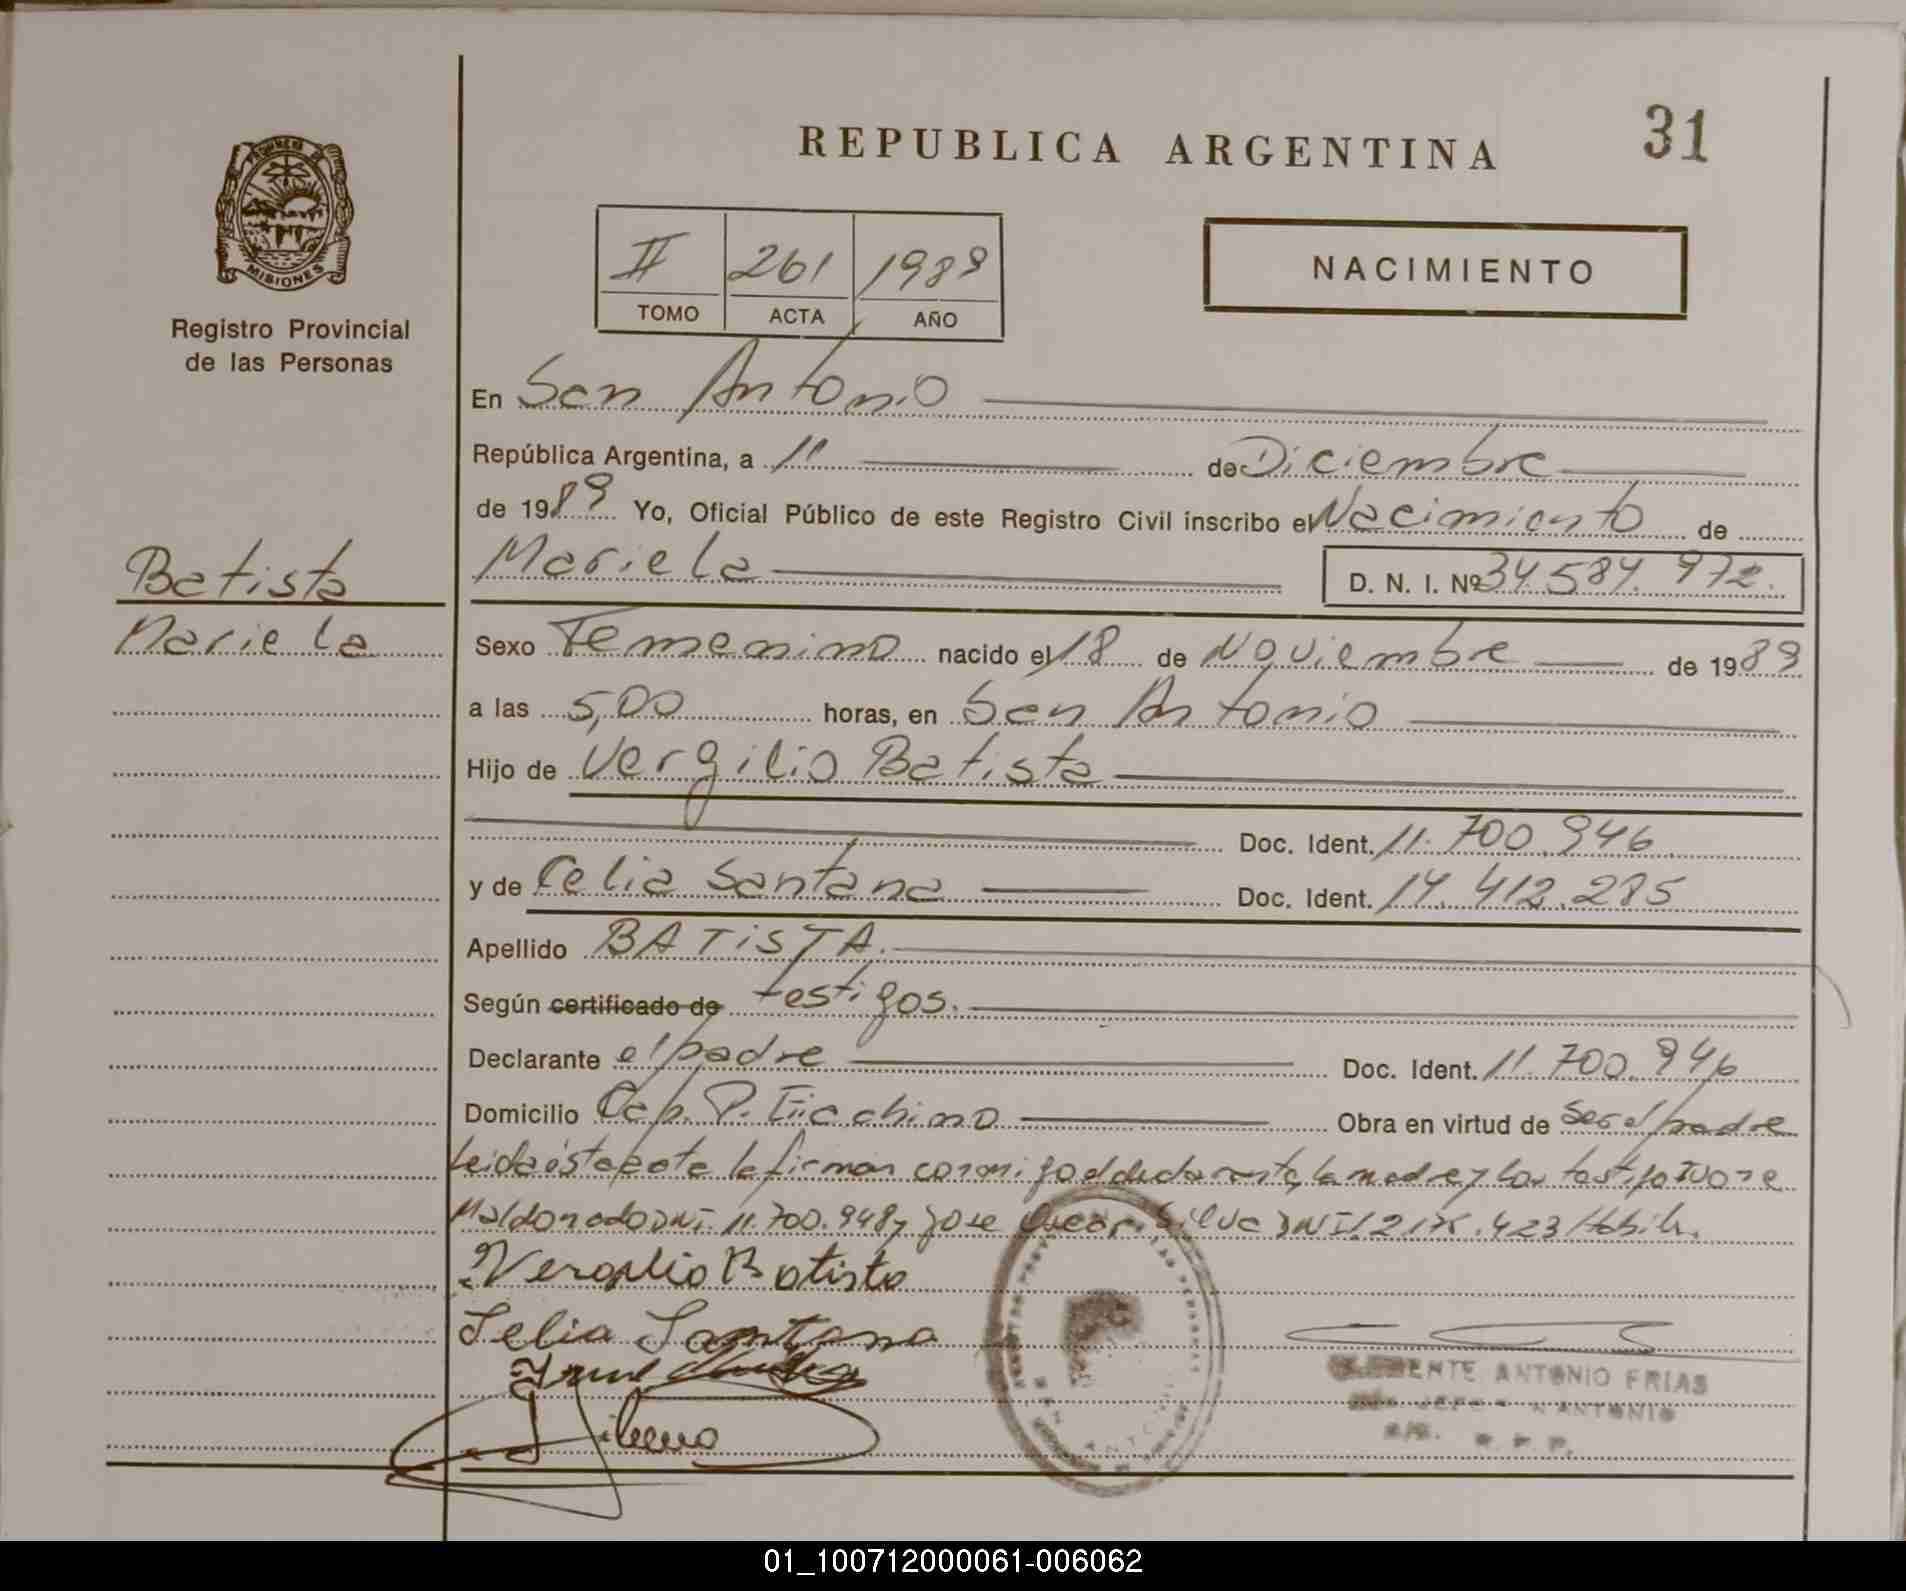 REPUBLICA ARGENTINA
31
PROVINCIA DE
MISIONES
Registro Provincial
de las Personas
II 261 1989
TOMO ACTA AÑO
NACIMIENTO
En San Antonio
República Argentina, a 11 de Diciembre
de 1989 Yo, Oficial Público de este Registro Civil inscribo el Nacimiento de
Mariela D. N. I. Nº 34.584.972.
Batista
Mariela
Sexo Femenino nacido el 18 de Noviembre de 1989
a las 5,00 horas, en San Antonio
Hijo de Vergilio Batista
Doc. Ident. 11.700.946
y de Celia Santana Doc. Ident. 14.412.285
Apellido BATISTA.
Según certificado de testigos.
Declarante el padre Doc. Ident. 11.700.946
Domicilio Cap. P. Obra en virtud de ser el padre
Leida ésta acta la firman conmigo el declarante, la madre y los testigos
Maldonado DNI. 11.700.948 y Jose Oscar Silva DNI Habil.
Vergilio Batista
Selia Santana
CLEMENTE ANTONIO FRIAS
JEFE SAN ANTONIO
R. P. P.
01_100712000061-006062